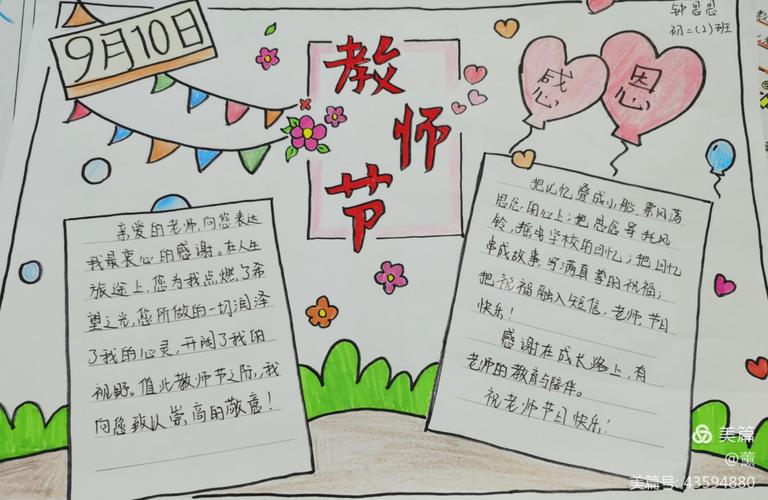 9月10日
教师节
感恩
钟思思
初二(2)班
亲爱的老师,向您表达
我最衷心的感谢。在人生
旅途上,您为我点燃了希
望之光,您所做的一切润泽
了我的心灵,开阔了我的
视野。值此教师节之际,我
向您致以崇高的敬意!
把记忆叠成小船,飘风荡
在心上;把思念
铃,摇出学校的回忆;把回忆
串成故事,写满真挚的祝福;
把祝福融入短信,老师,节日
快乐!
感谢在成长路上,有
老师的教育与陪伴。
祝老师节日快乐!
美篇
@薰
美篇号:43594880